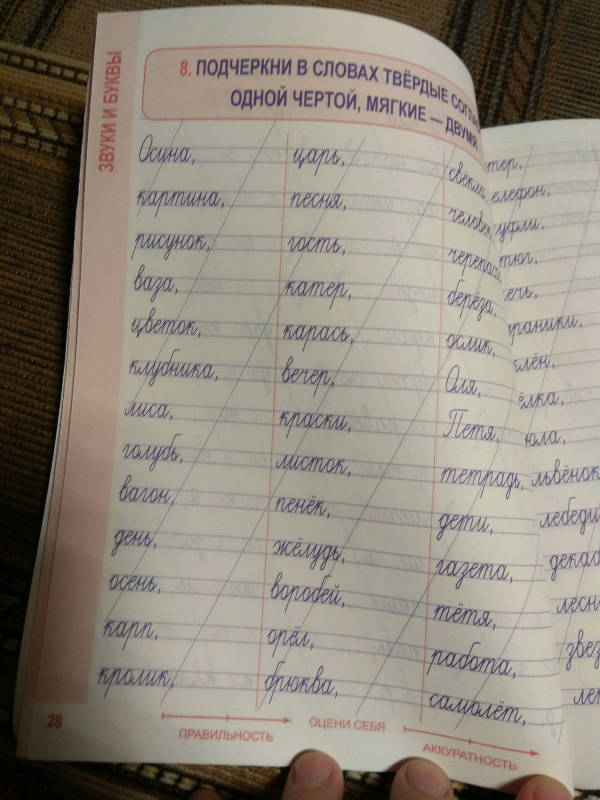 ЗВУКИ И БУКВЫ
8. ПОДЧЕРКНИ В СЛОВАХ ТВЁРДЫЕ
ОДНОЙ ЧЕРТОЙ, МЯГКИЕ — ДВУМЯ
Осина,
картина,
рисунок,
ваза,
цветок,
клубника,
лиса,
голубь,
вагон,
день,
осень,
карп,
кролик,
царь,
песня,
гость,
катер,
карась,
вечер,
краски,
листок,
пенёк,
жёлудь,
воробей,
орёл,
брюква,
свекла,
человек,
черепаха,
берёза,
ослик,
Оля,
Петя,
тетрадь,
дети,
газета,
тётя,
работа,
самолёт,
28
ПРАВИЛЬНОСТЬ
ОЦЕНИ СЕБЯ
АККУРАТНОСТЬ